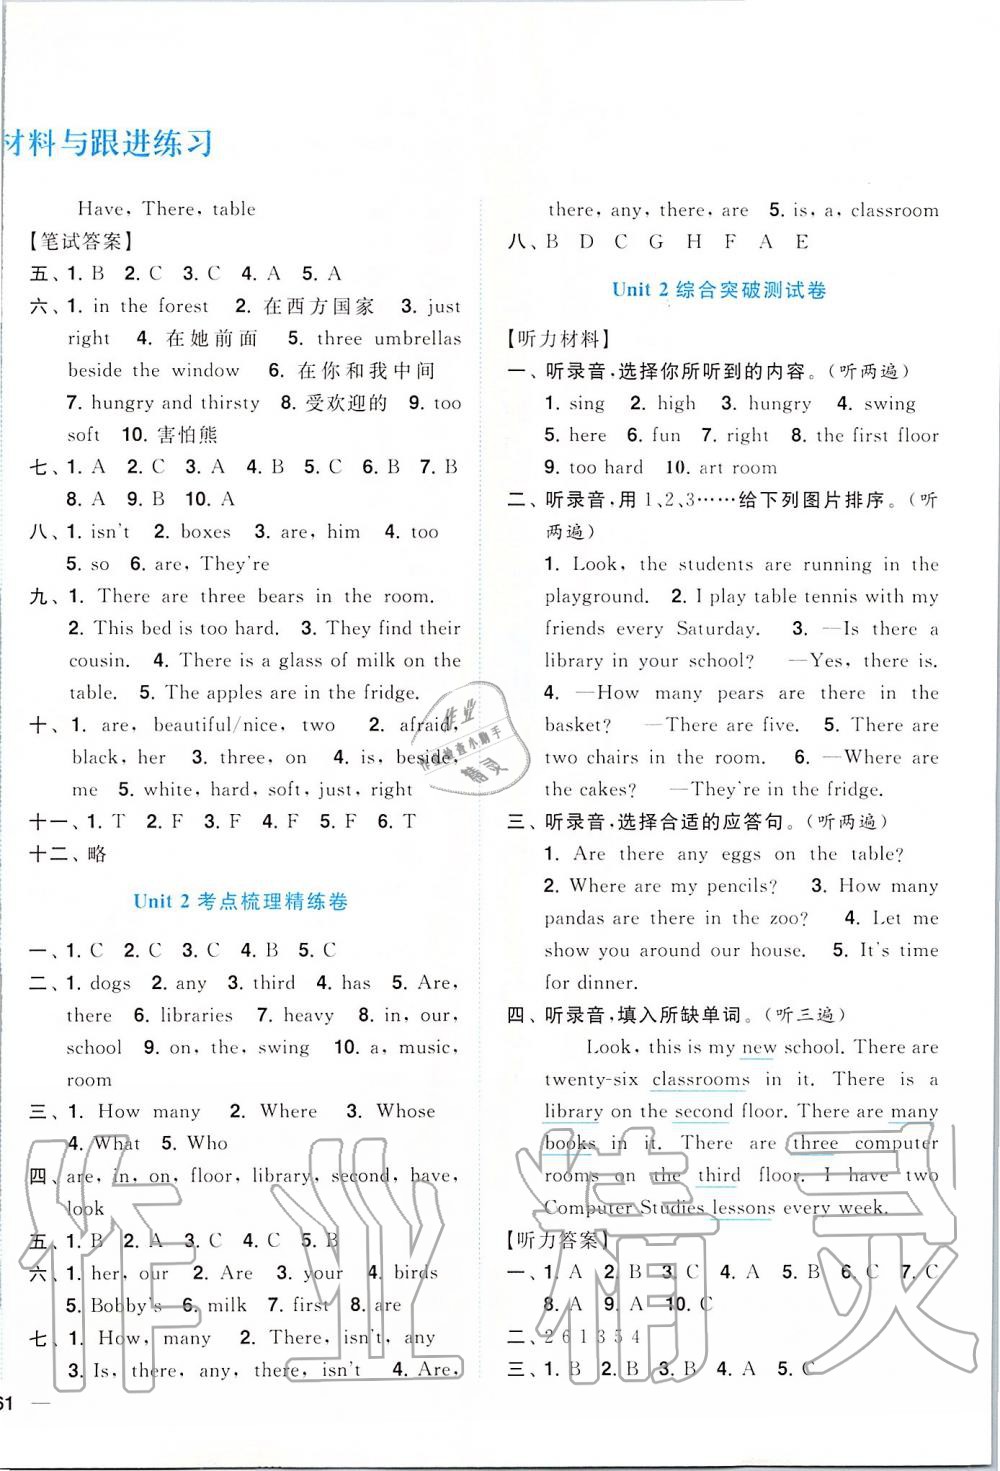 材料与跟进练习
Have, There, table
【笔试答案】
五、1. B 2. C 3. C 4. A 5. A
六、1. in the forest 2. 在西方国家 3. just
right 4. 在她前面 5. three umbrellas
beside the window 6. 在你和我中间
7. hungry and thirsty 8. 受欢迎的 9. too
soft 10. 害怕熊
七、1. A 2. C 3. A 4. B 5. C 6. B 7. B
8. A 9. B 10. A
八、1. isn't 2. boxes 3. are, him 4. too
5. so 6. are, They're
九、1. There are three bears in the room.
2. This bed is too hard. 3. They find their
cousin. 4. There is a glass of milk on the
table. 5. The apples are in the fridge.
十、1. are, beautiful/nice, two 2. afraid,
black, her 3. three, on 4. is, beside,
me 5. white, hard, soft, just, right
十一、1. T 2. F 3. F 4. F 5. F 6. T
十二、略
Unit 2 考点梳理精练卷
一、1. C 2. C 3. C 4. B 5. C
二、1. dogs 2. any 3. third 4. has 5. Are,
there 6. libraries 7. heavy 8. in, our,
school 9. on, the, swing 10. a, music,
room
三、1. How many 2. Where 3. Whose
4. What 5. Who
四、are, in, on, floor, library, second, have,
look
五、1. B 2. A 3. C 4. C 5. B
六、1. her, our 2. Are 3. your 4. birds
5. Bobby's 6. milk 7. first 8. are
七、1. How, many 2. There, isn't, any
3. Is, there, any, there, isn't 4. Are,
61 —
there, any, there, are 5. is, a, classroom
八、B D C G H F A E
Unit 2 综合突破测试卷
【听力材料】
一、听录音,选择你所听到的内容。(听两遍)
1. sing 2. high 3. hungry 4. swing
5. here 6. fun 7. right 8. the first floor
9. too hard 10. art room
二、听录音,用 1、2、3……给下列图片排序。(听
两遍)
1. Look, the students are running in the
playground. 2. I play table tennis with my
friends every Saturday. 3. —Is there a
library in your school? —Yes, there is.
4. —How many pears are there in the
basket? —There are five. 5. There are
two chairs in the room. 6. —Where are
the cakes? —They're in the fridge.
三、听录音,选择合适的应答句。(听两遍)
1. Are there any eggs on the table?
2. Where are my pencils? 3. How many
pandas are there in the zoo? 4. Let me
show you around our house. 5. It's time
for dinner.
四、听录音,填入所缺单词。(听三遍)
Look, this is my new school. There are
twenty-six classrooms in it. There is a
library on the second floor. There are many
books in it. There are three computer
rooms on the third floor. I have two
Computer Studies lessons every week.
【听力答案】
一、1. A 2. B 3. C 4. A 5. B 6. C 7. C
8. A 9. A 10. C
二、2 6 1 3 5 4
三、1. B 2. B 3. C 4. A 5. C
作业
作业检查小助手
精灵
作业精灵